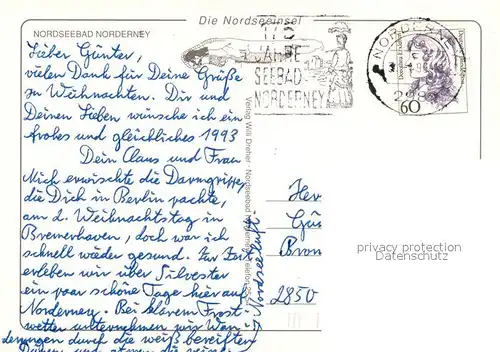 Die Nordseeinsel
NORDSEEBAD NORDERNEY
175
JAHRE
SEEBAD
NORDERNEY
NORDERNEY
60
Lieber Günter,
vielen Dank für Deine Grüße
zu Weihnachten. Dir und
Deinen Lieben wünsche ich ein
frohes und glückliches 1993
Dein Claus und Frau
Mich erwischte die Darmgrippe,
die Dich in Berlin packte,
am 2. Weihnachtstag in
Bremerhaven, doch war ich
schnell wieder gesund. Zur Zeit
erleben wir über Silvester
ein paar schöne Tage hier auf
Norderney. Bei klarem Frost-
wetter unternehmen wir Wan-
derungen durch die weiß bereiften
Dünen und atmen die
Nordseeluft.
Verlag Willi Dreher · Nordseebad Norderney
Her
Gün
Brem
2850
privacy protection
Datenschutz